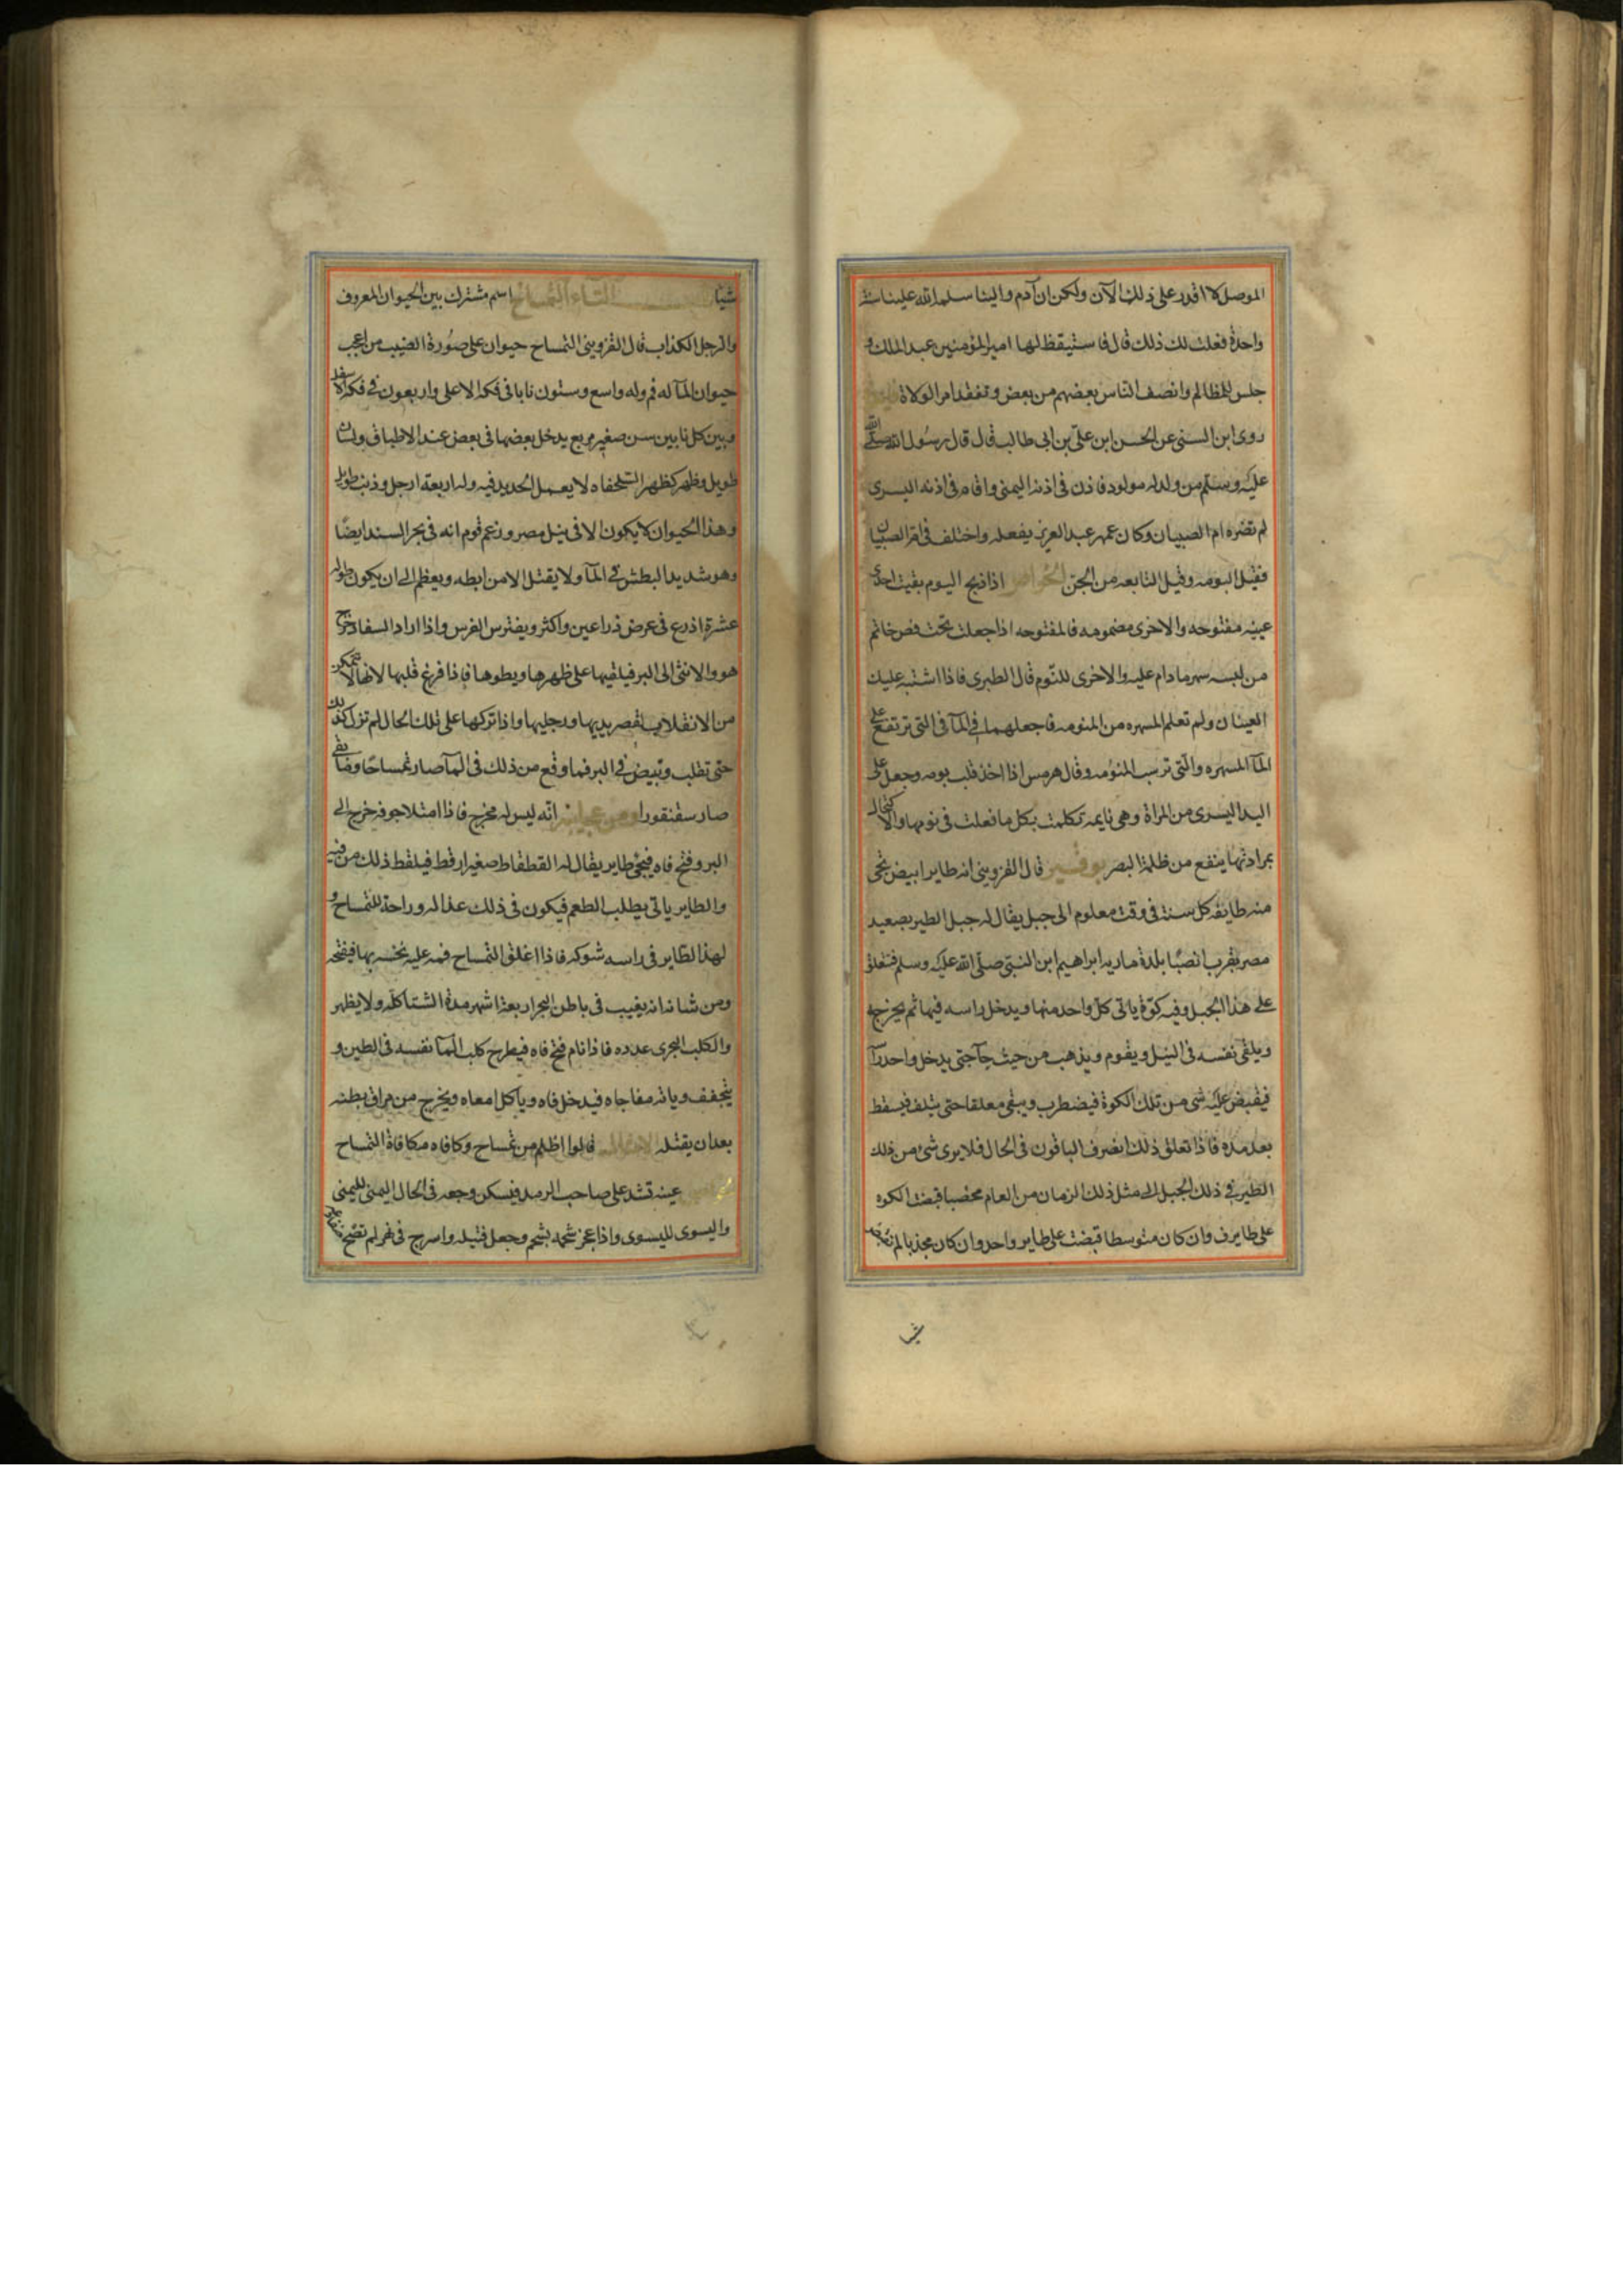 الموصل لا اقدر على ذلك الآن ولكن ان آدم والينا سلمه الله علينا سنة
واحدة فعلت لك ذلك قال فاستيقظ لها امير المؤمنين عبد الملك و
جلس للمظالم وانصف الناس بعضهم من بعض وتفقد امر الولاة
روى ابن السنى عن الحسن ابن على بن ابى طالب قال قال رسول الله صلى الله
عليه وسلم من ولد له مولود فاذن فى اذنه اليمنى واقام فى اذنه اليسرى
لم تضره ام الصبيان وكان عمر عبد العزيز يفعله واختلف فى ام الصبيان
فقيل البومه وقيل التابعه من الجن الخواص اذا ذبح اليوم بقيت احدى
عينيه مفتوحه والاخرى مضمومه فالمفتوحه اذا جعلت تحت فص خاتم
من لبسه سهر مادام عليه والاخرى للنوم قال الطبرى فاذا اشتبه عليك
العينان ولم تعلم المسهره من المنومه فاجعلهما فى المآ فى التى ترتفع على
المآ المسهره والتى ترسب المنومه وقال هرمس اذا اخذ قلب بومه وجعل على
اليد اليسرى من المراة وهى نايمه تكلمت بكل ما فعلت فى نومها والاكتحال
بمرادتها ينفع من ظلمة البصر بوقير قال القزوينى انه طاير ابيض تجى
منه طايفه كل سنة فى وقت معلوم الى جبل يقال له جبل الطير بصعيد
مصر بقرب انصبا بلدة ماريه ابراهيم ابن النبى صلى الله عليه وسلم فتعلق
على هذا الجبل وفيه كوة ياتى كل واحد منها ويدخل راسه فيها ثم يخرجه
ويلقى نفسه فى النيل ويقوم ويذهب من حيث جآ حتى يدخل واحد رآ
فيقبض عليه شى من تلك الكوة فيضطرب ويبقى معلقا حتى يتلف فيسقط
بعد مده فاذا تعلق ذلك انصرف الباقون فى الحال فلا يرى شئ من ذلك
الطير فى ذلك الجبل الى مثل ذلك الزمان من العام مخصبا قبضت الكوه
على طايرف وان كان متوسطا قبضت على طاير واحد وان كان مجدبا لم تقبض
شيا
شيا التاء التمساح اسم مشترك بين الحيوان المعروف
والرجل الكذاب قال القزوينى التمساح حيوان على صورة الضب من اعجب
حيوان المآ له فم وله واسع وستون نابا فى فكه الاعلى واربعون فى فكه الاسفل
وبين كل نابين سن صغير مربع يدخل بعضها فى بعض عند الاطباق ولسان
طويل وظهر كظهر السلحفاه لا يعمل الحديد فيه وله اربعة ارجل وذنب طويل
وهذا الحيوان لا يكون الا فى نيل مصر وزعم قوم انه فى بحر السند ايضًا
وهو شديد البطش فى المآ ولا يقتل الا من ابطه ويعظم الى ان يكون طوله
عشرة اذرع فى عرض ذراعين واكثر ويفترس الفرس واذا اراد السفاد خرج
هو والانثى الى البر فيلقيها على ظهرها ويطوها فاذا فرغ قلبها لانها لا تتمكن
من الانقلاب لقصر يديها ورجليها واذا تركها على تلك الحال لم تزل كذلك
حتى تقلب وتبيض فى البر فما وقع من ذلك فى المآ صار تمساحًا وما بقى
صار سقنقورا ومن عجايبه انه ليس له مخرج فاذا امتلا جوفه خرج الى
البر وفتح فاه فيجئ طاير يقال له القطقاط صغير ارقط فيلقط ذلك من فيه
والطاير ياتى يطلب الطعم فيكون فى ذلك غذا له وراحة للتمساح و
لهذا الطاير فى راسه شوكه فاذا اغلق التمساح فمه عليه نخسه بها فيفتحه
ومن شانه انه يغيب فى باطن البحر اربعة اشهر مدة الشتا كله ولا يظهر
والكلب البحرى عدده فاذا نام فتح فاه فيطرح كلب المآ نفسه فى الطين و
يتجفف وياته مفاجاه فيدخل فاه وياكل امعاه ويخرج من مراق بطنه
بعد ان يقتله الامثال قالوا اظلم من تمساح وكافاه مكافاة التمساح
عينه تشد على صاحب الرمد فيسكن وجعه فى الحال اليمنى لليمنى
واليسرى لليسرى واذا عجز شحمه بشحم وجعل فتيله واسرج فى نهر لم تضح